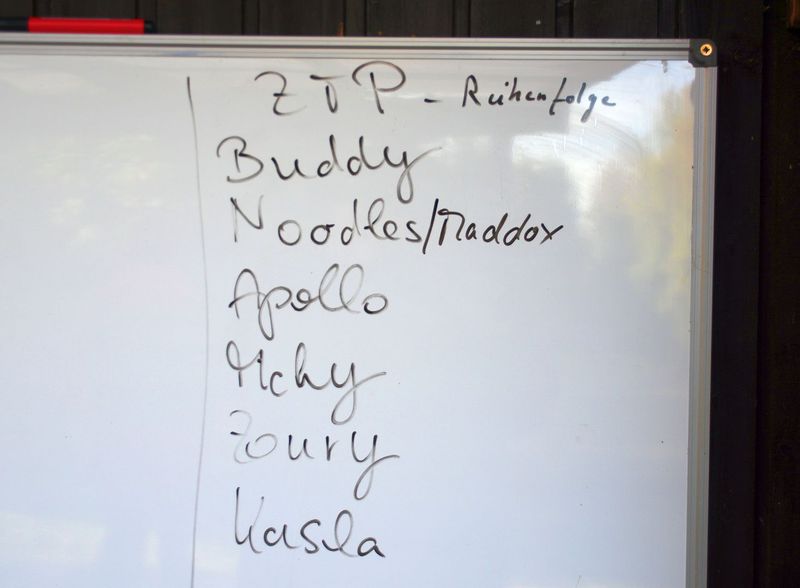 ZTP - Reihenfolge
Buddy
Noodles/Maddox
Apollo
Zoury